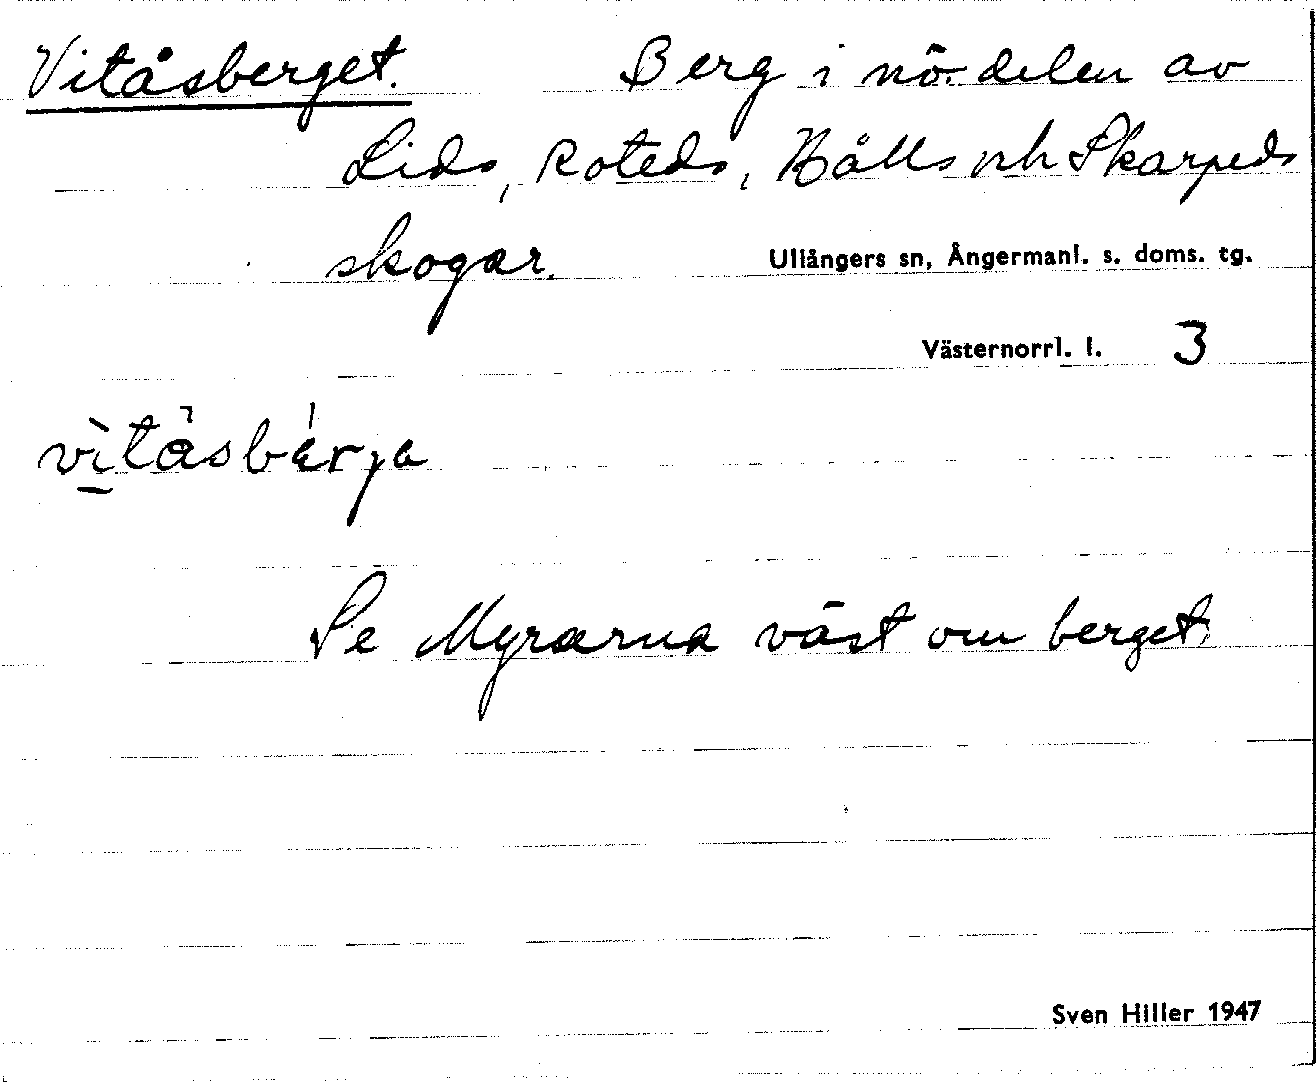 Vitåsberget. Berg i nö. delen av
Lids, Roteds, Hålls och Skarpeds
skogar.
Ullångers sn, Ångermanl. s. doms. tg.
Västernorrl. l. 3
Se Myrarna väst om berget.
Sven Hiller 1947